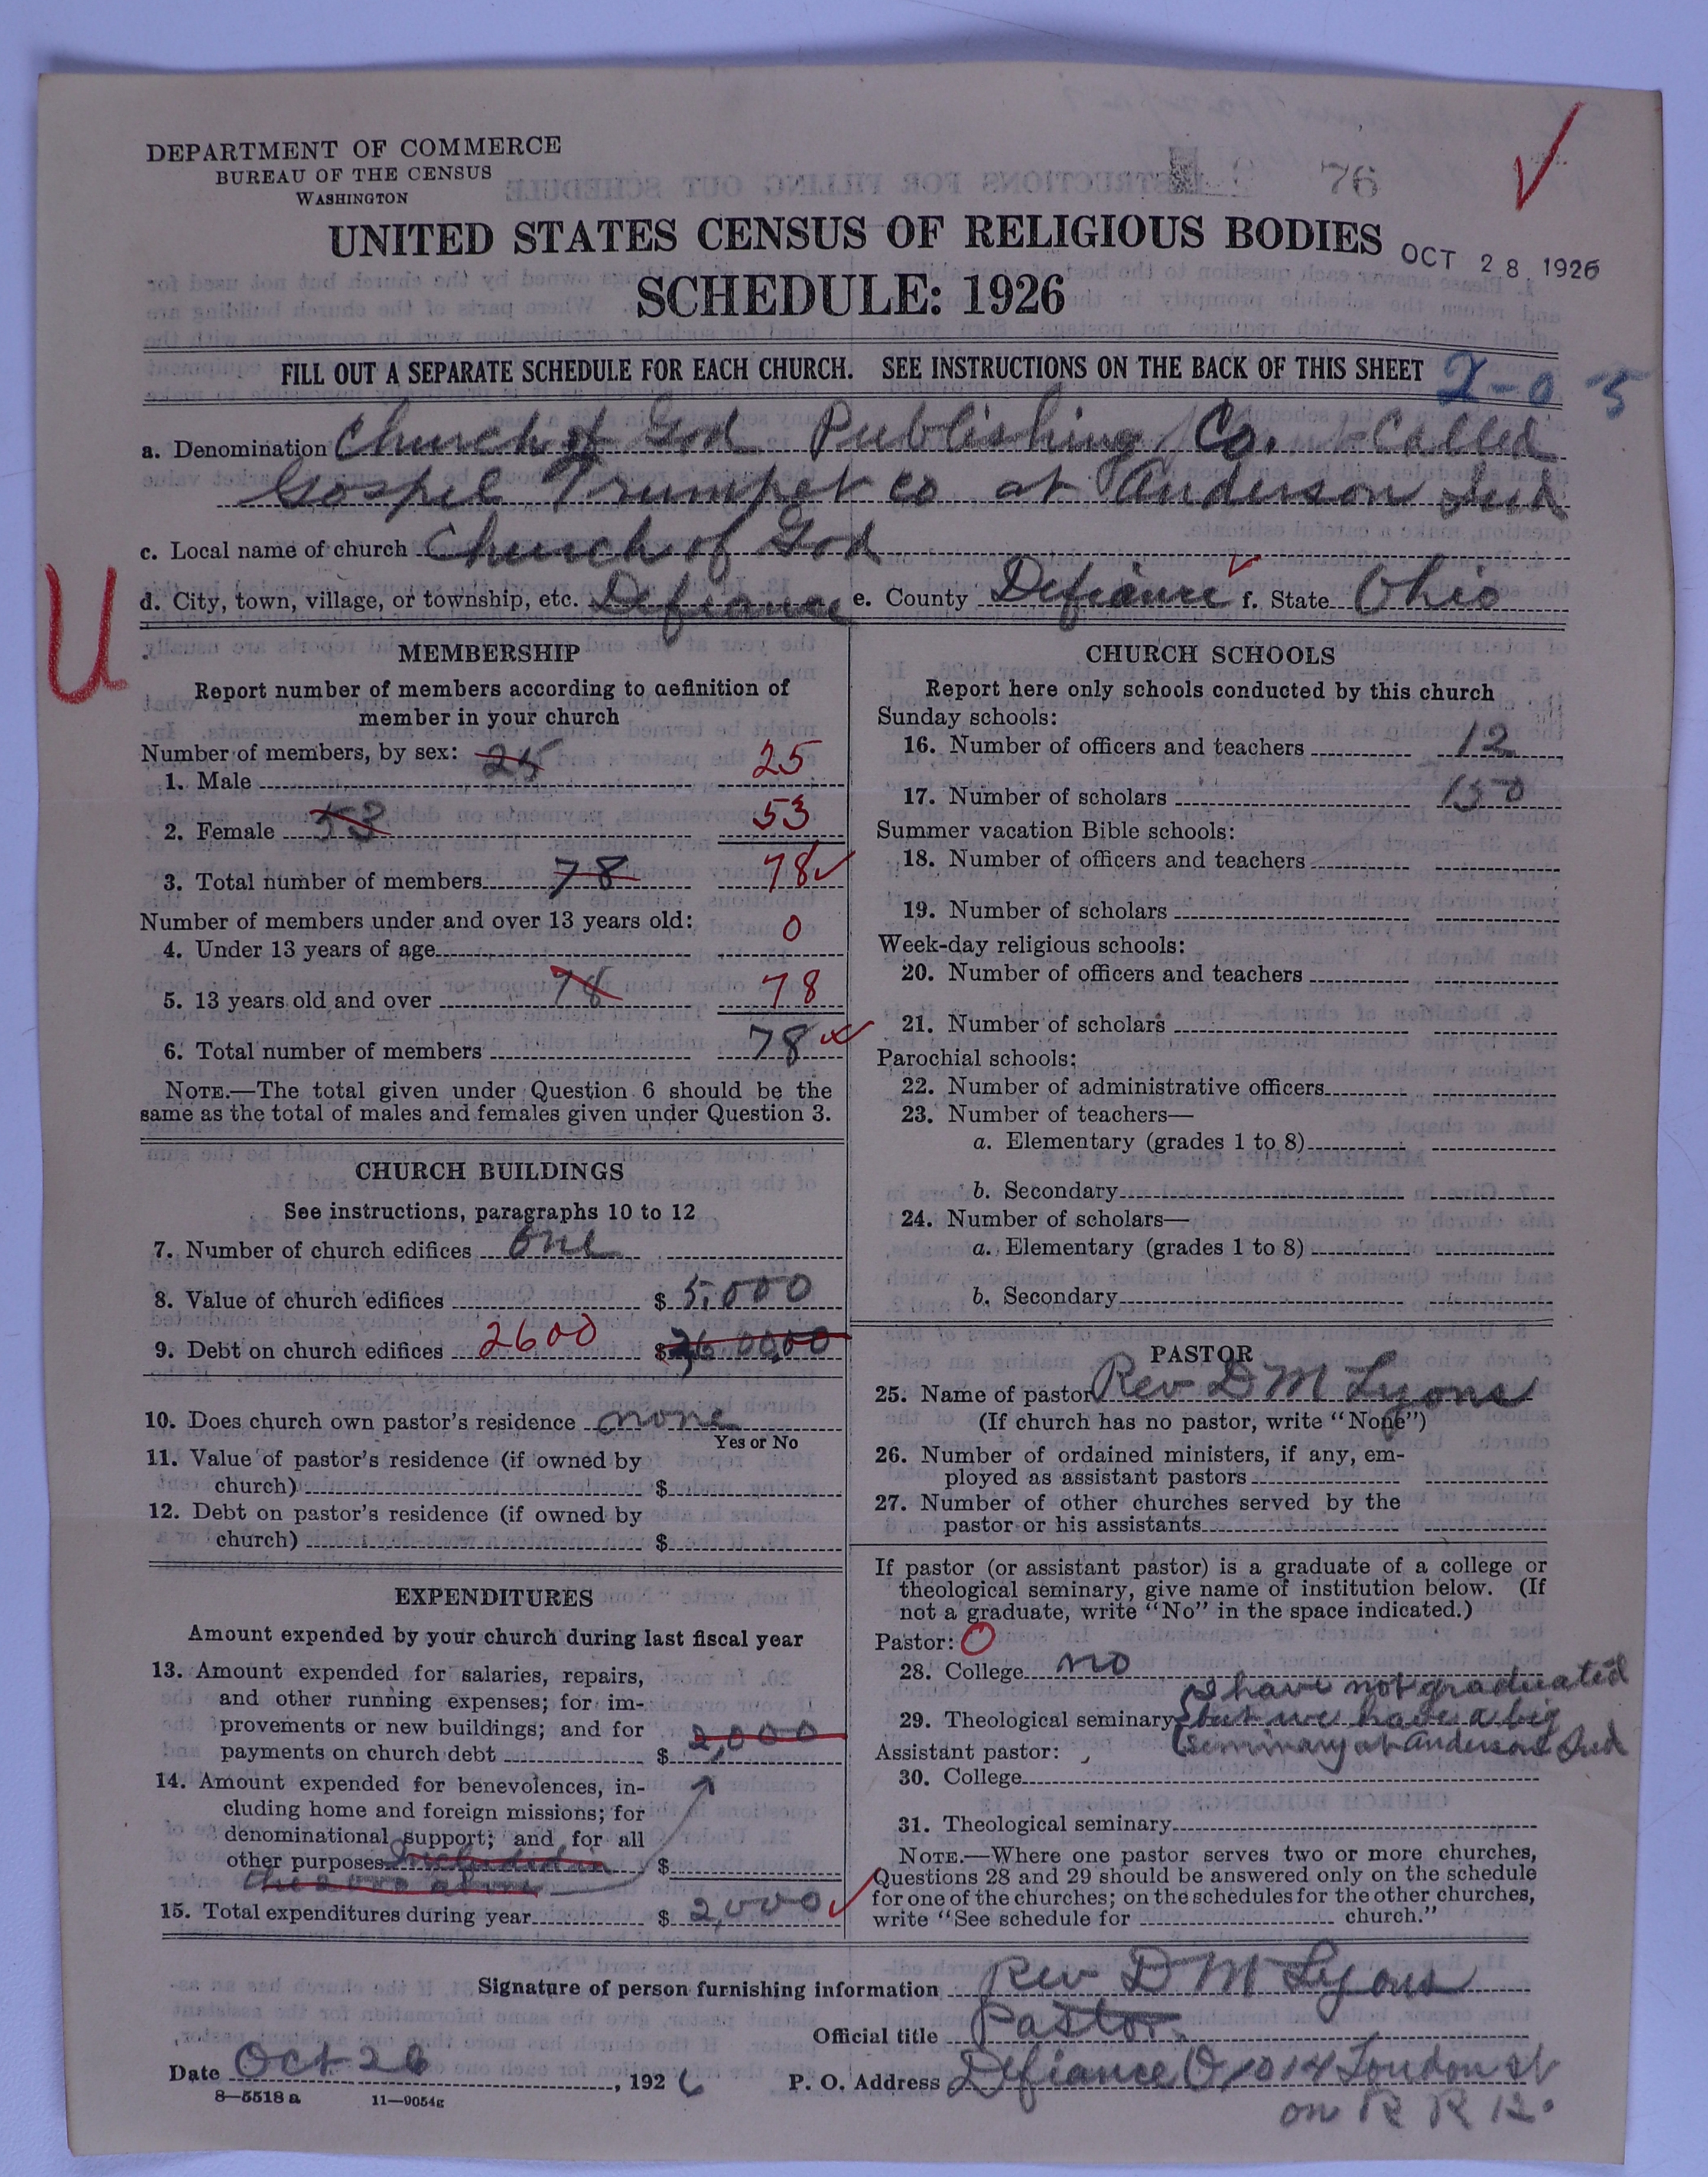 DEPARTMENT OF COMMERCE
BUREAU OF THE CENSUS
WASHINGTON
76
UNITED STATES CENSUS OF RELIGIOUS BODIES
OCT 28 1926
SCHEDULE: 1926
FILL OUT A SEPARATE SCHEDULE FOR EACH CHURCH. SEE INSTRUCTIONS ON THE BACK OF THIS SHEET
2-0 5
a. Denomination Church of God Publishing Co. Called
Gospel Trumpet co at Anderson Ind
c. Local name of church Church of God
d. City, town, village, or township, etc. Defiance e. County Defiance f. State Ohio
U
MEMBERSHIP
Report number of members according to definition of
member in your church
Number of members, by sex: 25
1. Male 25
2. Female 53 53
3. Total number of members 78 78
Number of members under and over 13 years old:
4. Under 13 years of age 0
5. 13 years old and over 78 78
6. Total number of members 78
NOTE.—The total given under Question 6 should be the
same as the total of males and females given under Question 3.
CHURCH BUILDINGS
See instructions, paragraphs 10 to 12
7. Number of church edifices one
8. Value of church edifices $ 5,000
9. Debt on church edifices 2600 $
10. Does church own pastor's residence none
Yes or No
11. Value of pastor's residence (if owned by
church) $
12. Debt on pastor's residence (if owned by
church) $
EXPENDITURES
Amount expended by your church during last fiscal year
13. Amount expended for salaries, repairs,
and other running expenses; for im-
provements or new buildings; and for
payments on church debt $ 2,000
14. Amount expended for benevolences, in-
cluding home and foreign missions; for
denominational support; and for all
other purposes included in $
the 2000 above
15. Total expenditures during year $ 2,000
CHURCH SCHOOLS
Report here only schools conducted by this church
Sunday schools:
16. Number of officers and teachers 12
17. Number of scholars 150
Summer vacation Bible schools:
18. Number of officers and teachers
19. Number of scholars
Week-day religious schools:
20. Number of officers and teachers
21. Number of scholars
Parochial schools:
22. Number of administrative officers
23. Number of teachers—
a. Elementary (grades 1 to 8)
b. Secondary
24. Number of scholars—
a. Elementary (grades 1 to 8)
b. Secondary
PASTOR
25. Name of pastor Rev D M Lyons
(If church has no pastor, write "None")
26. Number of ordained ministers, if any, em-
ployed as assistant pastors
27. Number of other churches served by the
pastor or his assistants
If pastor (or assistant pastor) is a graduate of a college or
theological seminary, give name of institution below. (If
not a graduate, write "No" in the space indicated.)
Pastor: O
28. College no
I have not graduated
29. Theological seminary but we have a big
seminary at Anderson Ind
Assistant pastor:
30. College
31. Theological seminary
NOTE.—Where one pastor serves two or more churches,
Questions 28 and 29 should be answered only on the schedule
for one of the churches; on the schedules for the other churches,
write "See schedule for church."
Signature of person furnishing information Rev D M Lyons
Official title Pastor
Date Oct 26, 1926 P. O. Address Defiance O 1014 London st
on R R 12.
8—5518 a 11—9054g